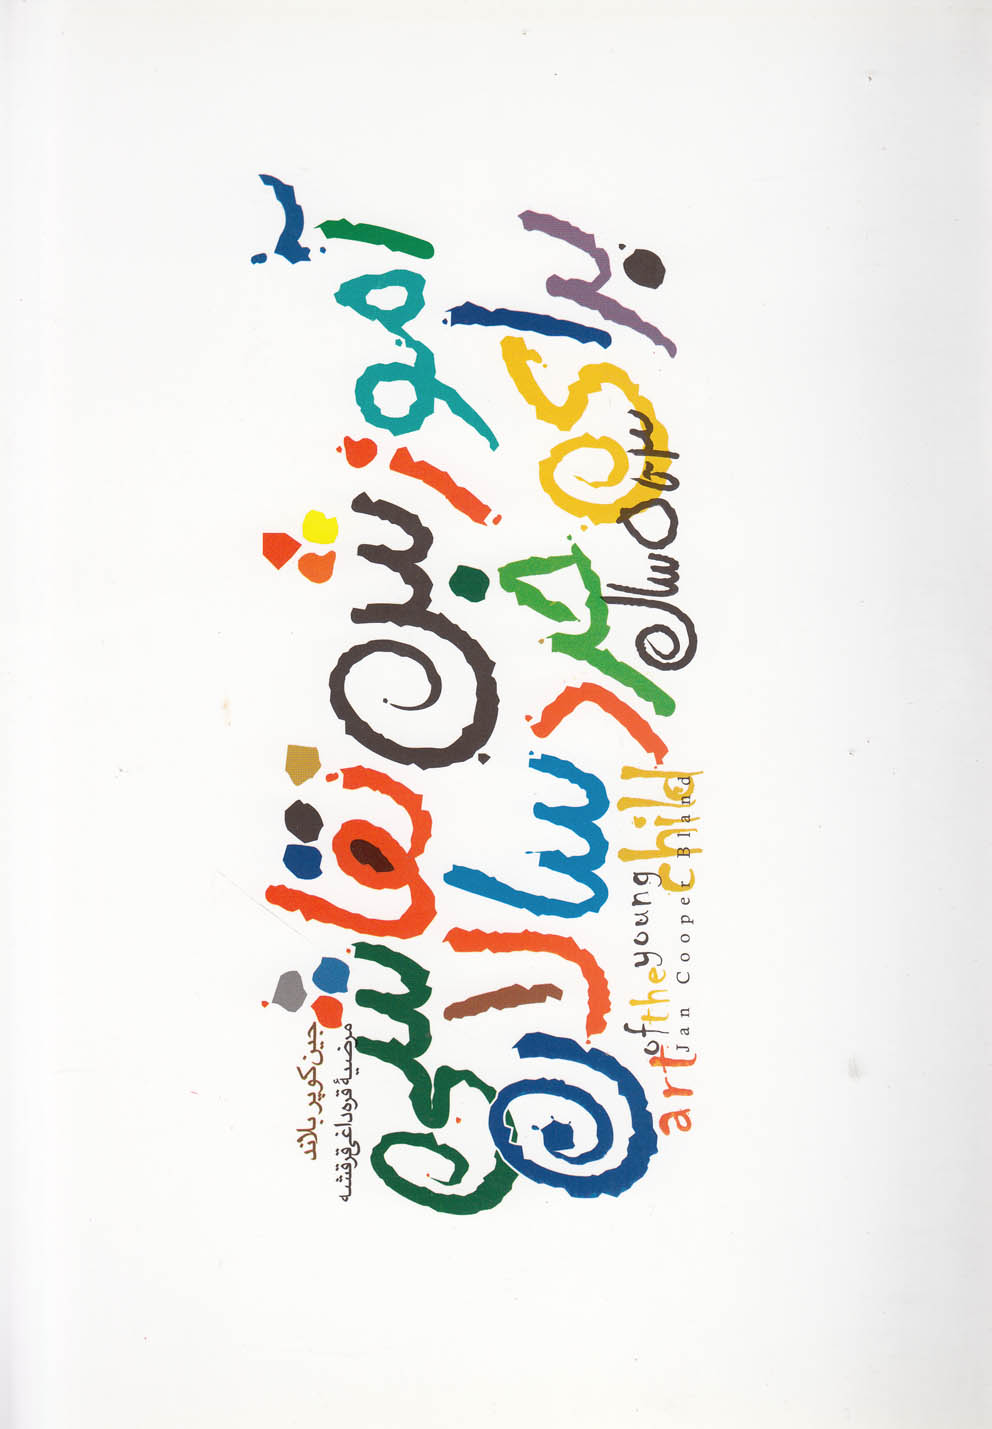 آموزش نقاشی
برای خردسالان
۳ تا ۵ سال
جین کوپر بلاند
مرضیهٔ قره‌داغی قرقشه
art of the young child
Jan Cooper Bland